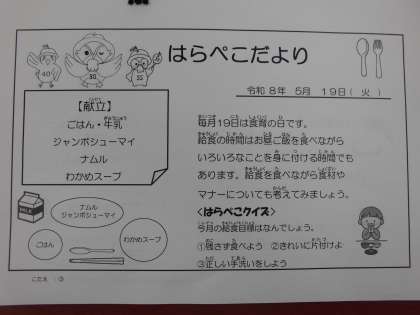 はらぺこだより
令和８年　５月　１９日（　火　）
【献立】
ごはん・牛乳
ジャンボシューマイ
ナムル
わかめスープ
毎月19日は食育の日です。
給食の時間はお昼ご飯を食べながら
いろいろなことを身に付ける時間でも
あります。給食を食べながら食材や
マナーについても考えてみましょう。
<はらぺこクイズ>
今月の給食目標はなんでしょう。
①残さず食べよう　②きれいに片付けよ
③正しい手洗いをしよう
ナムル
ジャンボシューマイ
ごはん
わかめスープ
こたえ　：③